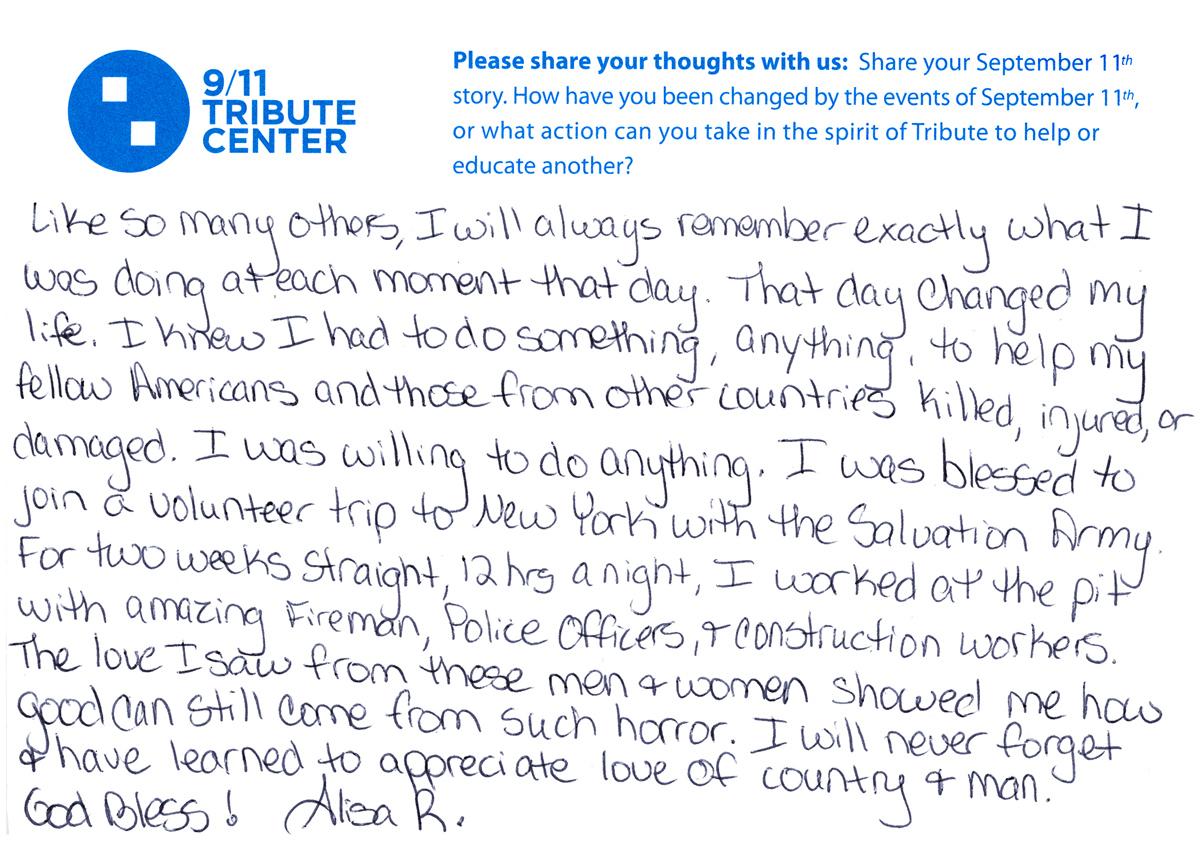 9/11
TRIBUTE
CENTER
Please share your thoughts with us: Share your September 11th
story. How have you been changed by the events of September 11th,
or what action can you take in the spirit of Tribute to help or
educate another?
Like so many others, I will always remember exactly what I
was doing at each moment that day. That day changed my
life. I knew I had to do something, anything, to help my
fellow Americans and those from other countries killed, injured, or
damaged. I was willing to do anything. I was blessed to
join a volunteer trip to New York with the Salvation Army.
For two weeks straight, 12 hrs a night, I worked at the pit
with amazing Fireman, Police Officers, + construction workers.
The love I saw from these men + women showed me how
good can still come from such horror. I will never forget
+ have learned to appreciate love of country + man.
God Bless! Alisa R.